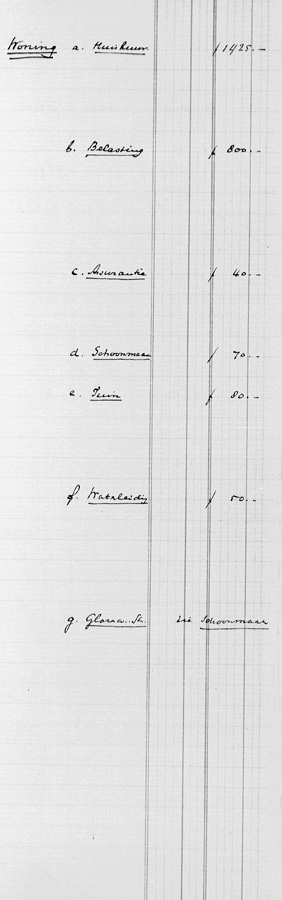 Woning a. Huishuur f 1425.-
b. Belasting f 800.-
c. Assurantie f 40.-
d. Schoonmaak f 70.-
e. Tuin f 80.-
f. Waterleiding f 50.-
g. zie Schoonmaak